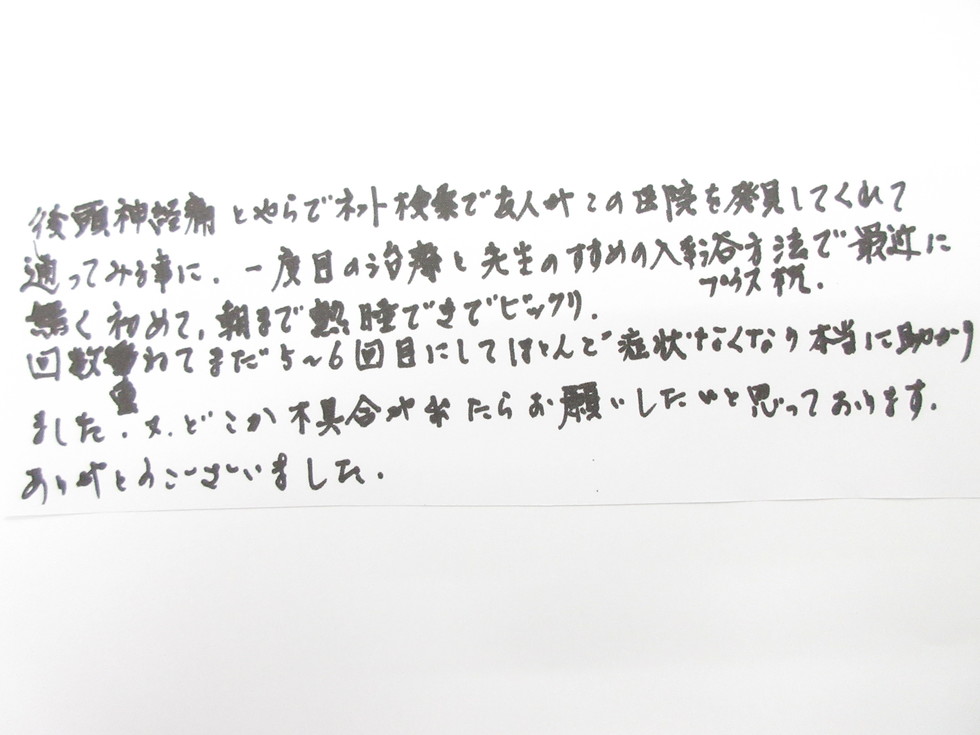 後頭神経痛とやらでネット検索で友人がこの医院を発見してくれて
通ってみる事に. 一度目の治療と先生のすすめの入浴方法で最近に
プラス枕.
無く初めて, 朝まで熟睡できてビックリ.
回数重ねてまだ5~6回目にしてほとんど症状なくなり本当に助かり
ました. 又. どこか不具合が出たらお願いしたいと思っております.
ありがとうございました.